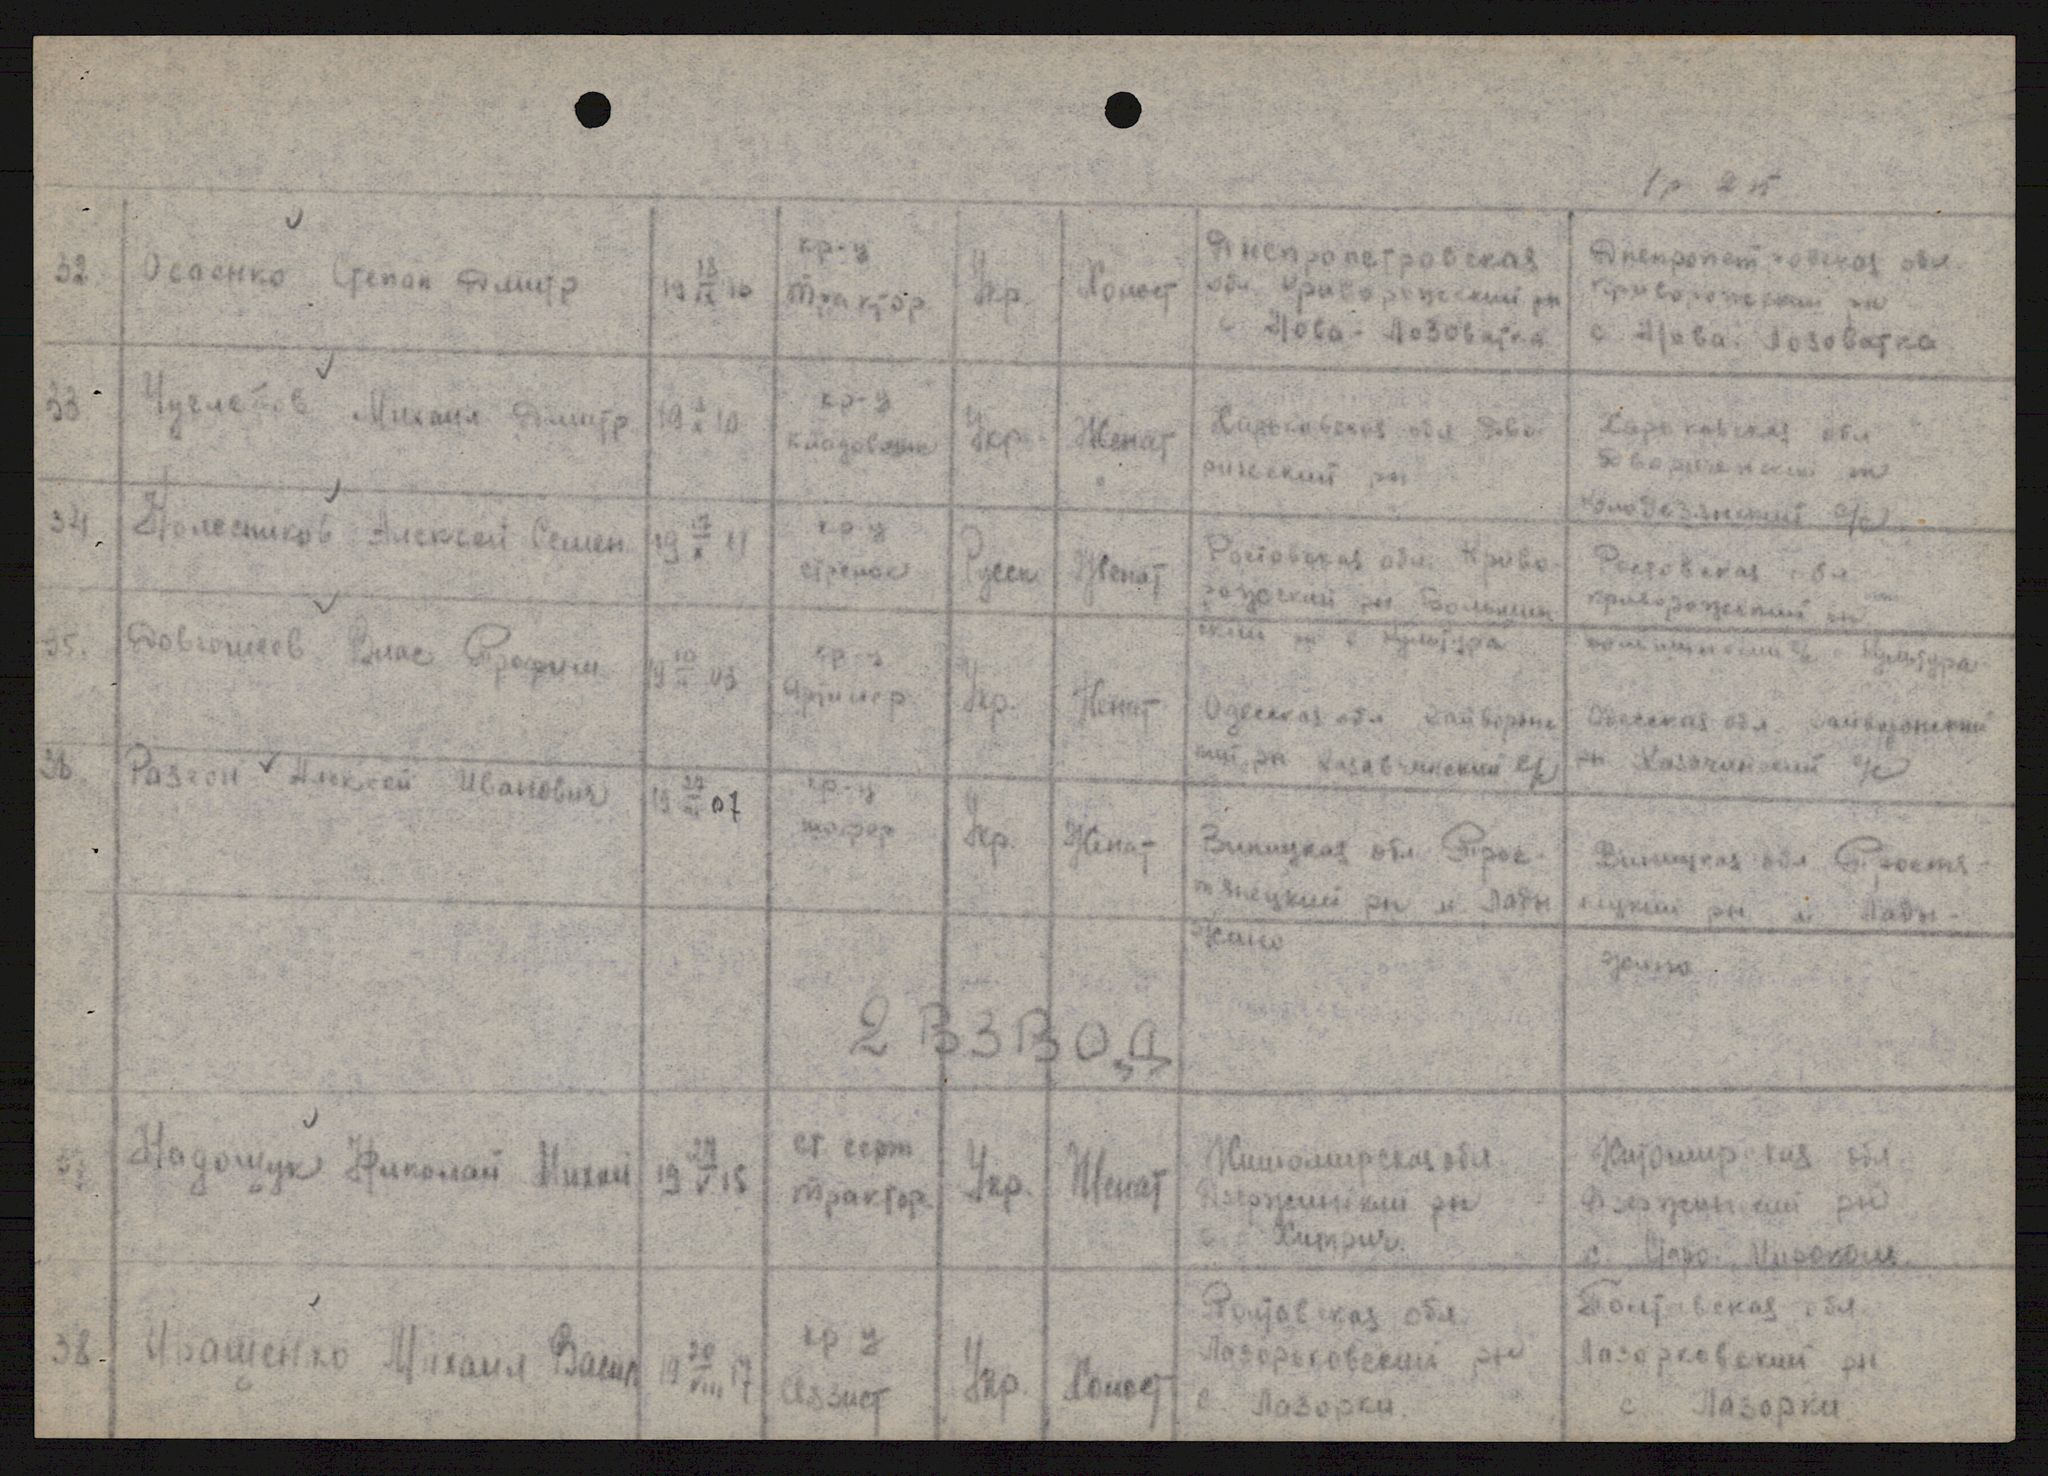 1р 2п
32. Осаенко Степан Дмитр 19 13/IX 10 кр-ц Трактор. Укр. Холост
Днепропетровская обл. Криворожский рн с Нова-Лозоватка
Днепропетровская обл. Криворожский рн с Нова-Лозоватка
33 Михаил Дмитр. 19 10 кр-ц кладовщик Укр. Женат
Харьковская обл Дво-
ричский рн
Харьковская обл
рн
с/с
34 Колесников Алексей Семен. 19 17/X 11 кр-ц стрелок Русск Женат
Ростовская обл. Криво-
рожский рн с Культура
Ростовская обл
Криворожский рн
с/с Культура
35. Влас Трофим 19 10 03 кр-ц Укр. Женат
Одесская обл
рн с/с
Одесская обл.
рн с/с
36. Разгон Алексей Иванович 19 27 07 кр-ц шофер Укр. Женат
Виницкая обл Трос-
тянецкий рн м Лады
жино
Виницкая обл Тростя-
нецкий рн м Лады-
жино
2 ВЗВОД
37 Надощук Николай Михай 19 29/V 15 ст серж Трактор. Укр. Женат
Житомирская обл
Дзержинский рн
с.
Житомирская обл.
Дзержинский рн
с.
38. Иващенко Михаил Васил 19 20/VIII 17 кр-ц Укр. Холост
Полтавская обл.
Лазорьковский рн
с. Лазорки.
Полтавская обл
Лазорковский рн
с Лазорки